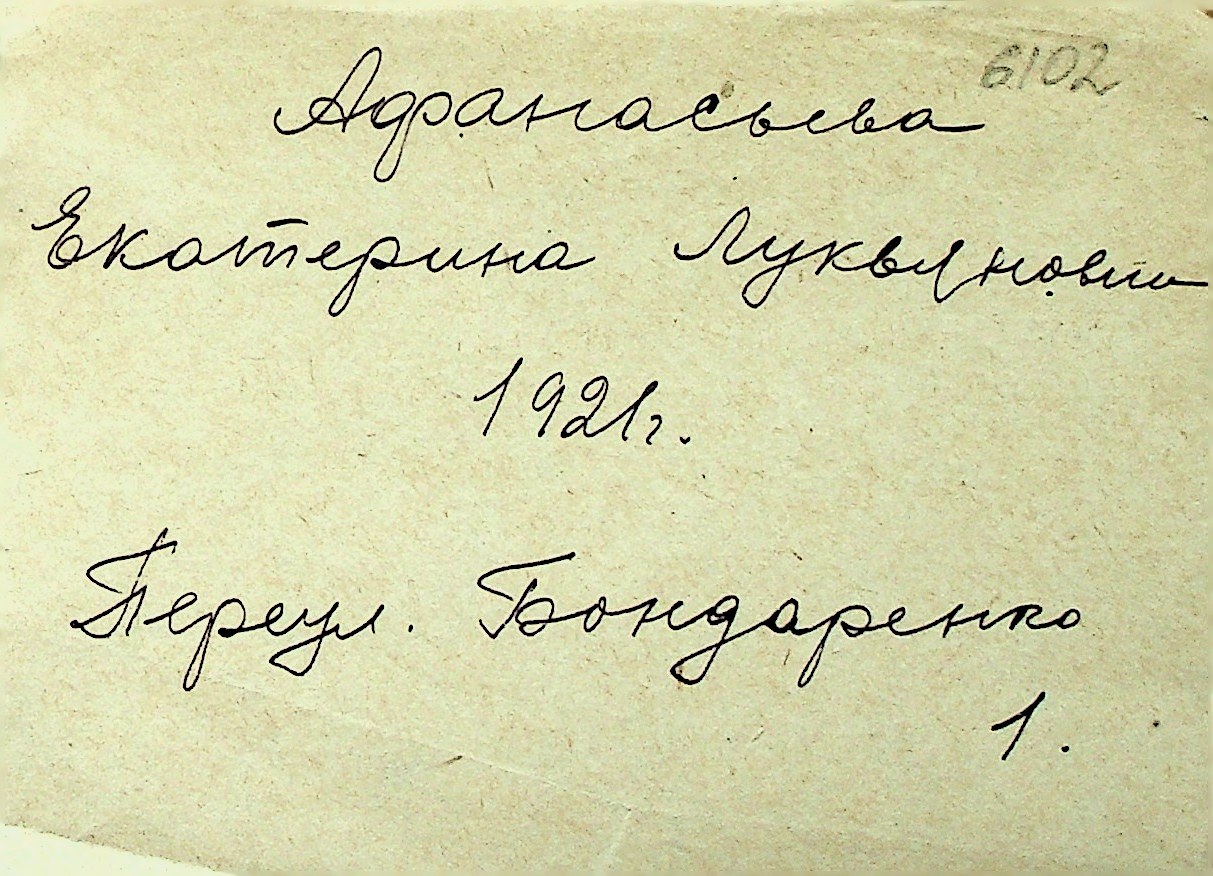 6102
Афанасьева
Екатерина Лукьяновна
1921г.
Переул. Бондаренко
1.